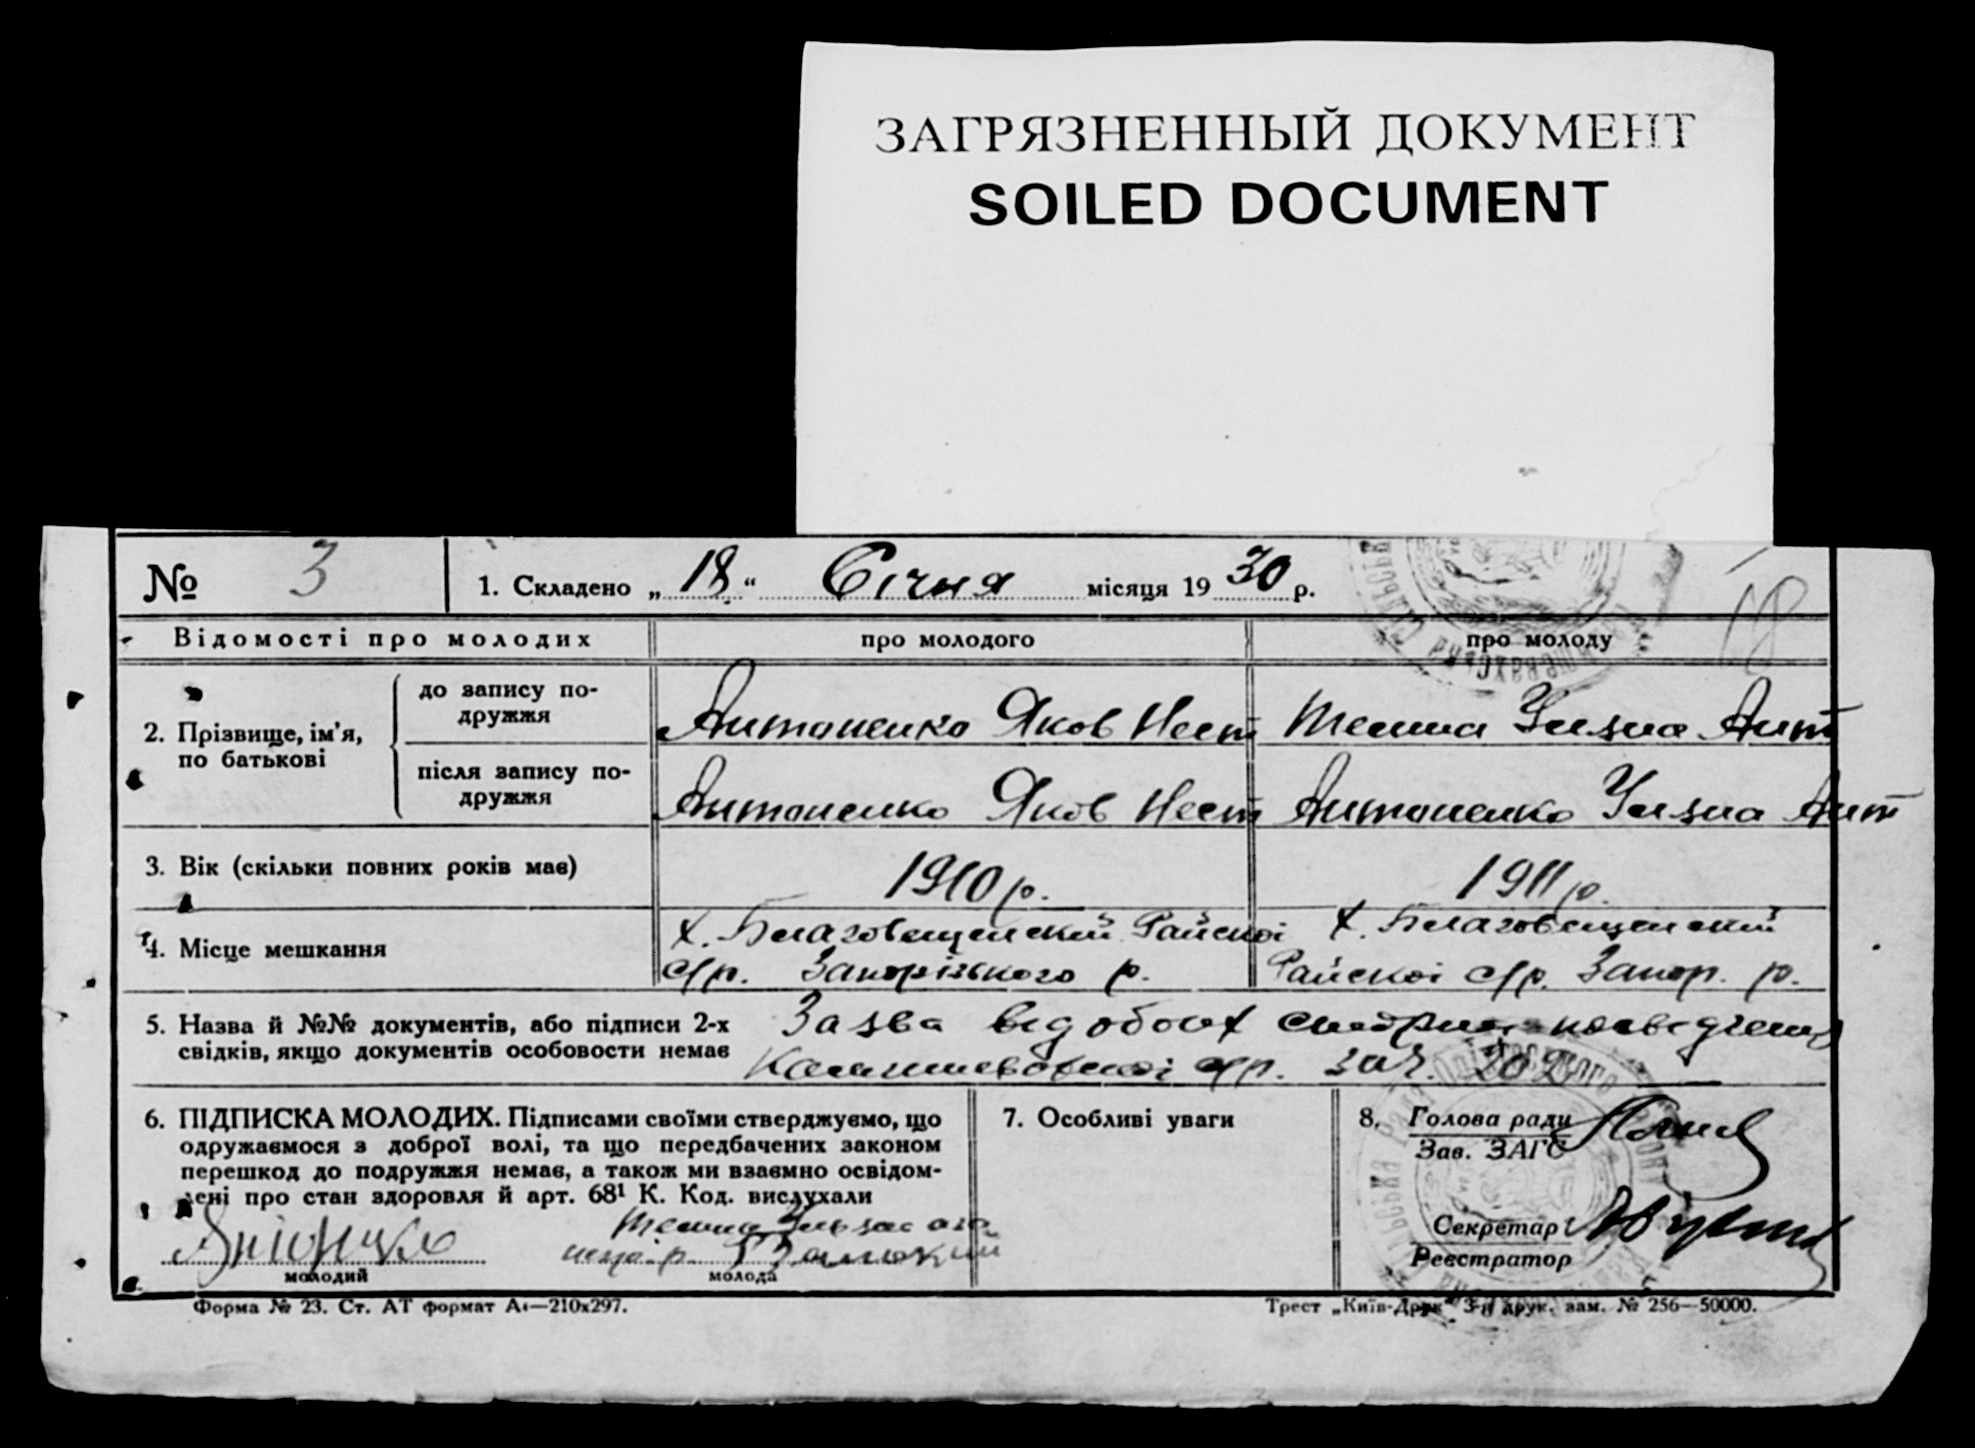 ЗАГРЯЗНЕННЫЙ ДОКУМЕНТ
SOILED DOCUMENT
№ 3
1. Складено „18“ Січня місяця 1930 р.
18
Відомості про молодих
про молодого
про молоду
2. Прізвище, ім'я,
по батькові
до запису по-
дружжя
Антоненко Яков Нест
Ант
після запису по-
дружжя
Антоненко Яков Нест
Антоненко Ант
3. Вік (скільки повних років має)
1910 р.
1911 р.
4. Місце мешкання
х. Благовещенский Райскої
с/р. Запорізького р.
х. Благовещенский
Райскої с/р. Запор. р.
5. Назва й №№ документів, або підписи 2-х
свідків, якщо документів особовости немає
Заява від обоих
с/р. за №. 202
6. ПІДПИСКА МОЛОДИХ. Підписами своїми стверджуємо, що
одружаємося з доброї волі, та що передбачених законом
перешкод до подружжя немає, а також ми взаємно освідом-
лені про стан здоровля й арт. 68¹ К. Код. вислухали
Антоненко
молодий
молода
7. Особливі уваги
8. Голова ради
Зав. ЗАГС
Секретар
Реєстратор
Форма № 23. Ст. АТ формат А4—210х297.
Трест „Київ-Друк“ 3-я друк. зам. № 256—50000.